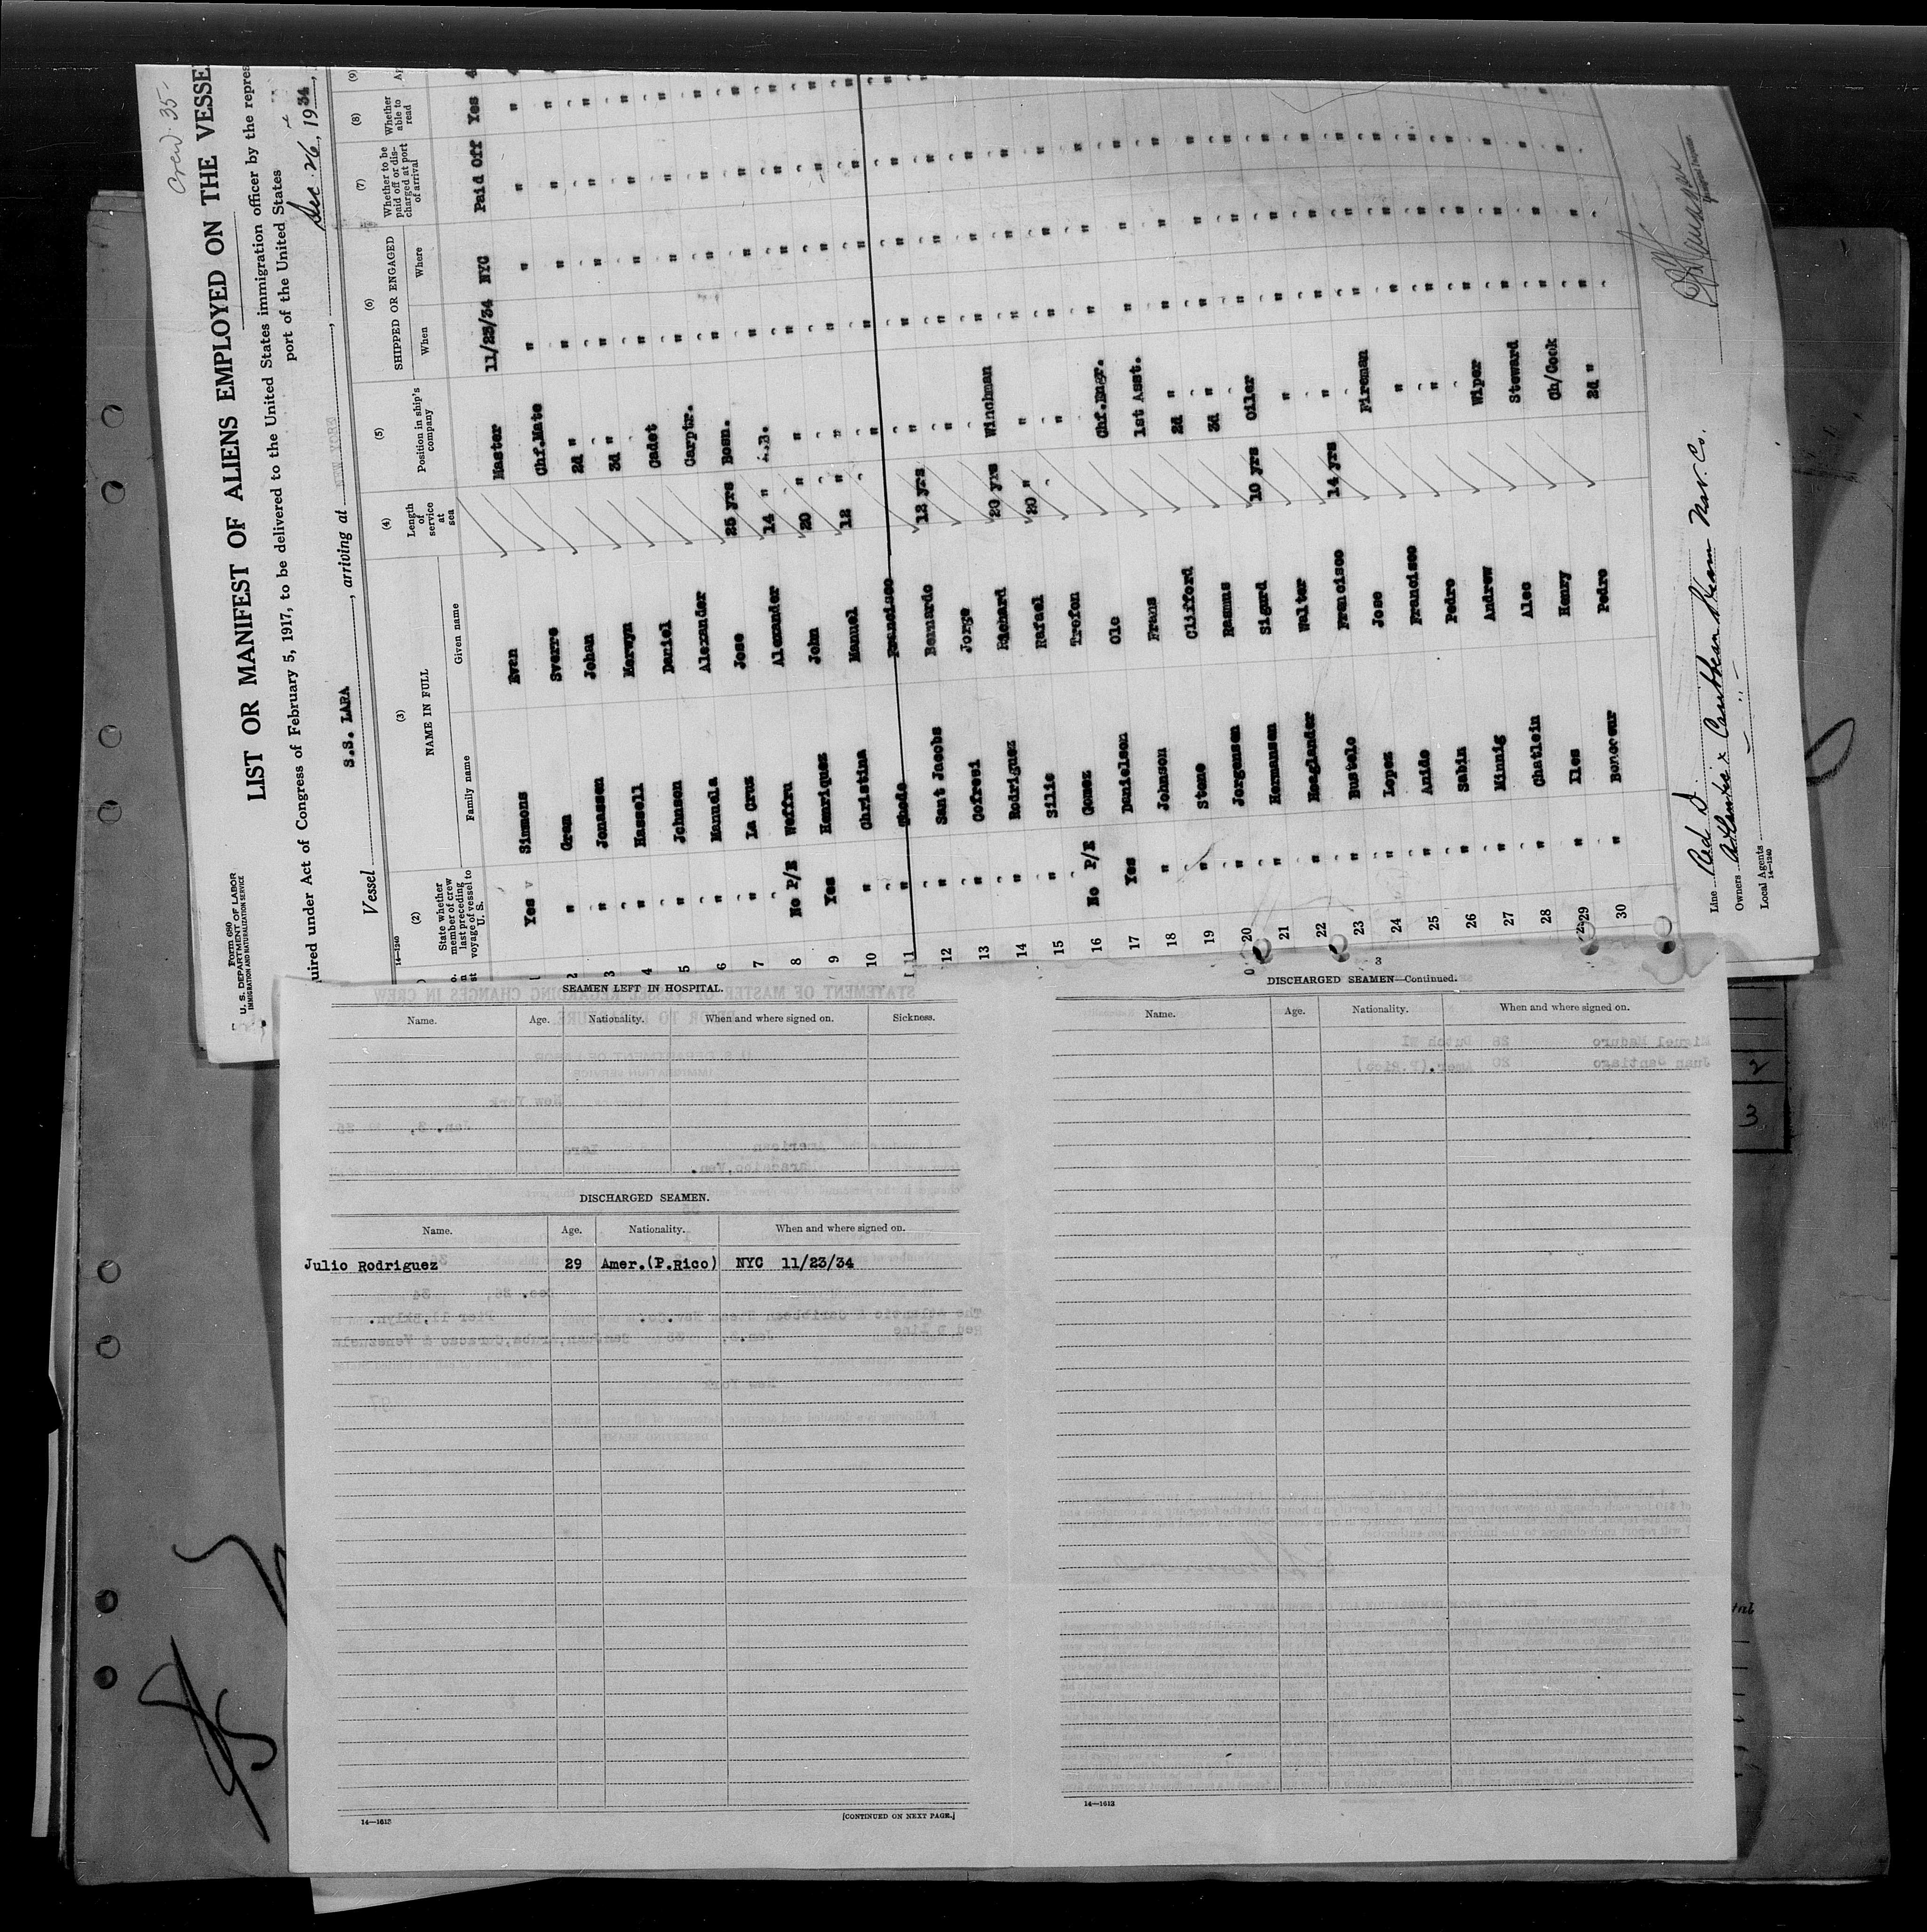 Crew 35
Form 680
U. S. DEPARTMENT OF LABOR
IMMIGRATION AND NATURALIZATION SERVICE
LIST OR MANIFEST OF ALIENS EMPLOYED ON THE VESSE
uired under Act of Congress of February 5, 1917, to be delivered to the United States immigration officer by the repres
port of the United States
Vessel S.S. LARA, arriving at NEW YORK, Dec. 26, 1934,
14—1240
(2) (3) (4) (5) (6) (7) (8) (9)
State whether member of crew last preceding voyage of vessel to U. S.
NAME IN FULL
Family name Given name
Length of service at sea
Position in ship's company
SHIPPED OR ENGAGED
When Where
Whether to be paid off or discharged at port of arrival
Whether able to read
1 Yes Simmons Evan Master 11/23/34 NYC Paid Off Yes
2 " Gren Sverre Chf.Mate " " " "
3 " Jonassen Johan 2d " " " " "
4 " Hassell Mervyn 3d " " " " "
5 " Johnson Daniel Cadet " " " "
6 " Manuela Alexander Carptr. " " " "
7 " La Cruz Jose 25 yrs Bosn. " " " "
8 No P/E Weffru Alexander 14 " A.B. " " " "
9 Yes Henriquez John 20 " " " " " "
10 " Christina Manuel 12 " " " " " "
11 " Thode Francisco " " " " "
12 " Sant Jacobs Bernardo 13 yrs " " " " "
13 " Cofresi Jorge " " " "
14 " Rodriguez Richard 20 yrs Winchman " " " "
15 " Silie Rafael 20 " " " " " "
16 No P/E Gomez Trofon " " " " "
17 Yes Danielson Olo Chf.Engr. " " " "
18 " Johnson Frans 1st Asst. " " " "
19 " Stone Clifford 2d " " " " "
20 " Jorgensen Rasmus 3d " " " " "
21 " Hermansen Sigurd 10 yrs Oiler " " " "
22 " Hoaglander Walter " " " " "
23 " Bustelo Francisco 14 yrs " " " " "
24 " Lopez Jose Fireman " " " "
25 " Anido Francisco " " " " "
26 " Sabin Pedro " " " " "
27 " Minnig Andrew Wiper " " " "
28 " Chatlein Alec Steward " " " "
29 " Iles Henry Ch/Cook " " " "
30 " Pedro 2d " " " " "
Line Red D
Owners Atlantic & Caribbean Steam Nav. Co.
Local Agents " "
14—1240
SEAMEN LEFT IN HOSPITAL.
Name. Age. Nationality. When and where signed on. Sickness.
DISCHARGED SEAMEN.
Name. Age. Nationality. When and where signed on.
Julio Rodriguez 29 Amer.(P.Rico) NYC 11/23/34
14—1613
[CONTINUED ON NEXT PAGE.]
3
DISCHARGED SEAMEN—Continued.
Name. Age. Nationality. When and where signed on.
14—1613
2
3